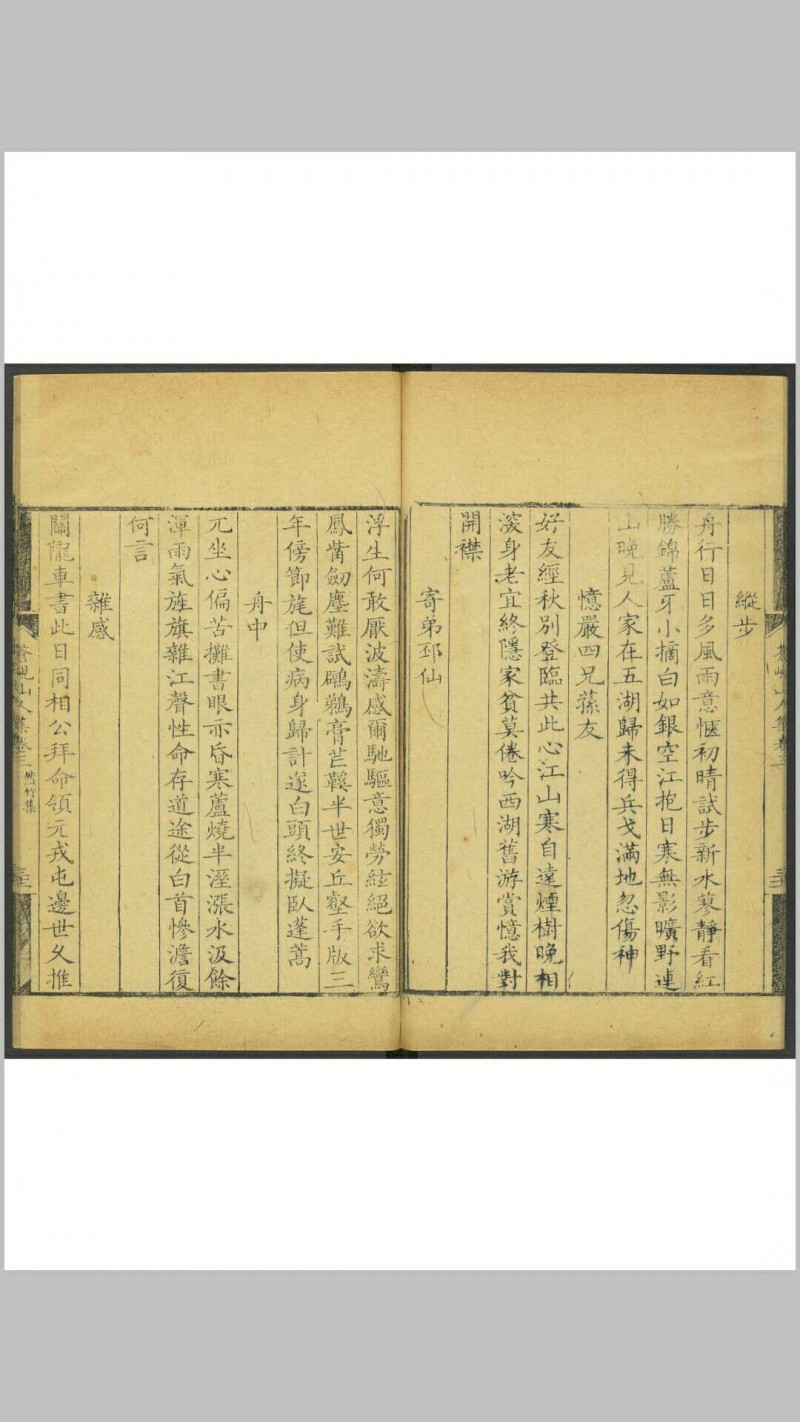 縱步
舟行日日多風雨意愜初晴試步新水蓼靜看紅
勝錦蘆牙小摘白如銀空江抱日寒無影曠野連
山晚見人家在五湖歸未得兵戈滿地忽傷神
憶嚴四兄蓀友
好友經秋別登臨共此心江山寒自遠煙樹晚相
深身老宜終隱家貧莫倦吟西湖舊游賞憶我對
開襟
寄弟邳仙
浮生何敢厭波濤感爾馳驅意獨勞絃絕欲求鸞
鳳觜劒塵難試鷿鵜膏芒鞵半世安丘壑手版三
年傍節旄但使病身歸計遂白頭終擬臥蓬蒿
舟中
兀坐心偏苦攤書眼亦昏寒蘆燒半溼漲水汲餘
渾雨氣旌旗雜江聲性命存道途從白首慘澹復
何言
雜感
關隴車書此日同相公拜命領元戎屯邊世久推
山人集卷三
然竹集